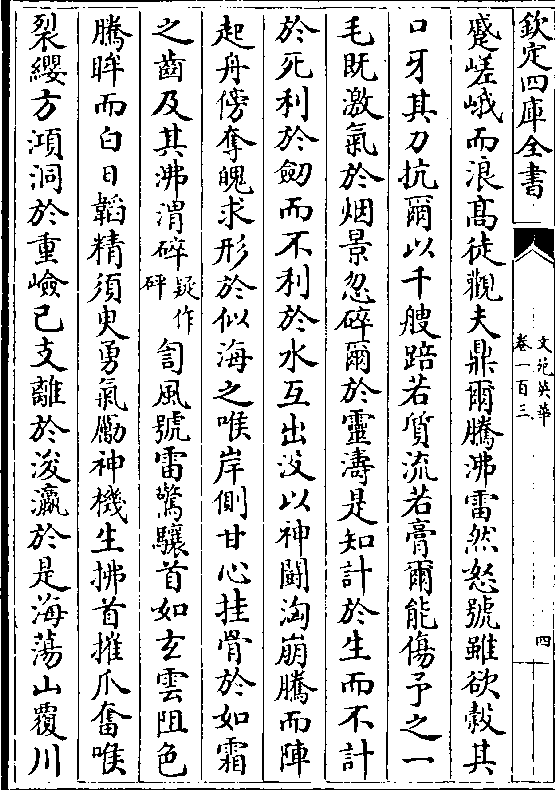 欽定四庫全書
文苑英華
卷一百三
四
蹙嵯峨而浪髙徒觀夫鼎爾騰沸雷然怒號雖欲殺其
口牙其刀抗爾以千艘踣若質流若膏爾能傷予之一
毛既激氣於烟景忽碎爾於靈濤是知計於生而不計
於死利於劒而不利於水互出沒以神鬭洶崩騰而陣
起舟傍奪魄求形於似海之喉岸側甘心挂骨於如霜
之齒及其沸渭碎疑作砰訇風號雷驚驤首如玄雲阻色
騰眸而白日韜精須臾勇氣勵神機生拂首摧爪奮喉
裂纓方澒洞於重嶮已支離於浚瀛於是海蕩山覆川